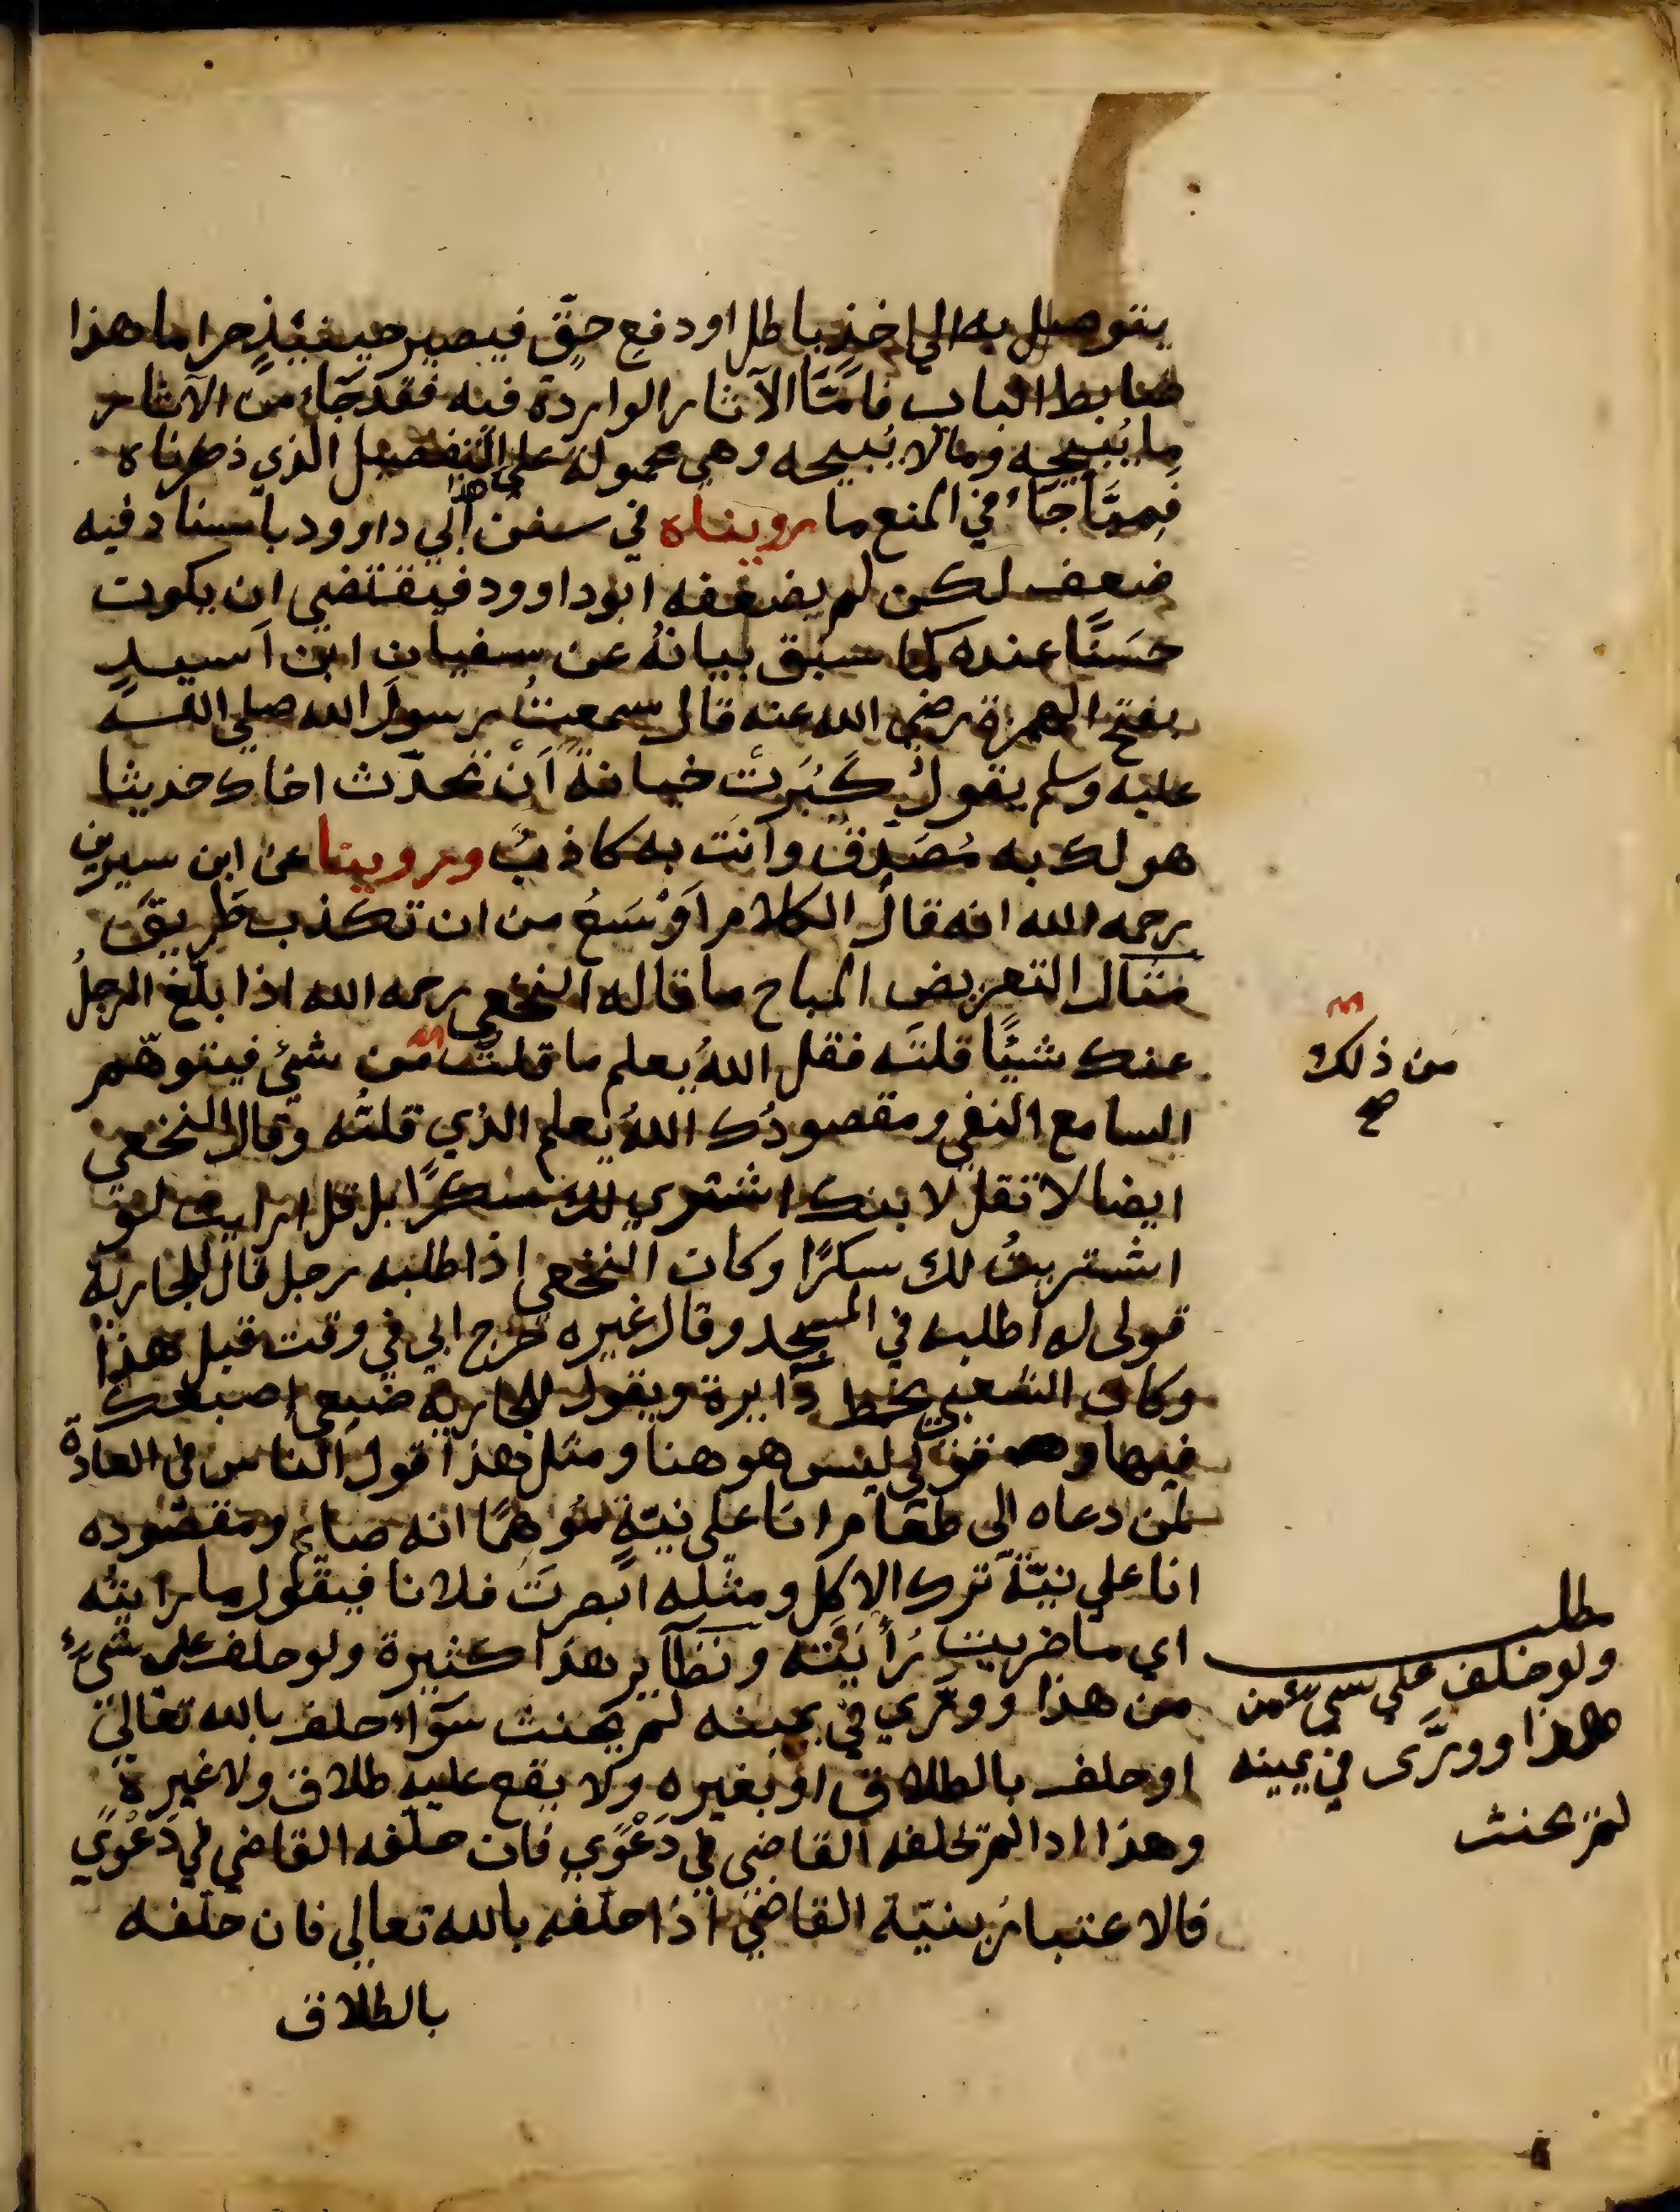 يتوصل به الى اخذ باطل او دفع حقٍّ فيصير حينئذٍ حراما هذا
ضابط الباب فامّا الآثار الواردة فيه فقد جاء من الآثار
ما يُبيحه وما لا يُبيحه وهي محمولة على هذا التفصيل الذي ذكرناه
فمِمَّا جآء في المنع ما رويناه في سنن ابي داوود باسناد فيه
ضعف لكن لم يضعفه ابو داوود فيقتضي ان يكون
حَسَنًا عنده كما سبق بيانهُ عن سفيان ابن اَسيدٍ
بفتح الهمزة رضي الله عنه قال سمعتُ رسولَ الله صلى الله
عليه وسلم يقول كَبُرَتْ خيانةً اَنْ تحدّث اخاك حديثا
هو لك به مُصَدِقٌ وانتَ به كاذبٌ وروينا عن ابن سيرين
رحمه الله انه قال الكلام اَوْسَعُ من ان تكذب ظريقٌ
مثال التعريض المباح ما قاله النخعي رحمه الله اذا بلّغ الرجلُ
عنك شيئًا قلتَه فقل اللهُ يعلم ما قلتُ من شيئ فيتوهّم
السامع النفي ومقصودُك اللهُ يعلم الذي قلتُه وقال النخعي
ايضا لا تقل لابنك اشتري لك سكرًا بل قل ارايت لو
اشتريتُ لك سكرًا وكان النخعي اذا طلبه رجل قال للجارية
قولى له اطلبه في المسجد وقال غيره خرج ابي في وقت قبل هذا
وكان الشعبي يخط دآيرة ويقول للجارية ضعي اصبعك
فيها وقولي ليس هو هنا ومثل هذا قول الناس في العادة
لمن دعاه الى طعام انا على نيّةٍ مُوهمًا انه صائم ومقصوده
انا على نيّة ترك الاكل ومثله ابصرتَ فلانا فيقول ما رايتُه
اي ما ضربت رُأيته ونظآير هذا كثيرة ولو حلف على شيءٍ
من هذا وورّي في يمينه لم يحنث سوآء حلف بالله تعالى
او حلف بالطلاق او بغيره ولا يقع عليه طلاق ولا غيره
وهذا اذا لم يحلفه القاضي في دَعْوَي فان حلّفه القاضي في دَعْوَي
فالاعتبار بنيّة القاضي اذا حلّفه بالله تعالي فان حلّفه
بالطلاق
من ذلك
صح
مطلب
ولو حلف على شيء من
هذا وورَّى في يمينه
لم يحنث